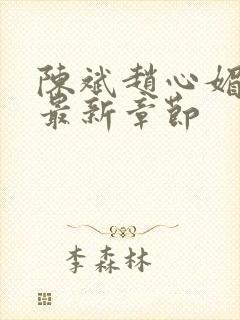 陳斌趙心媚
最新章節
李森林